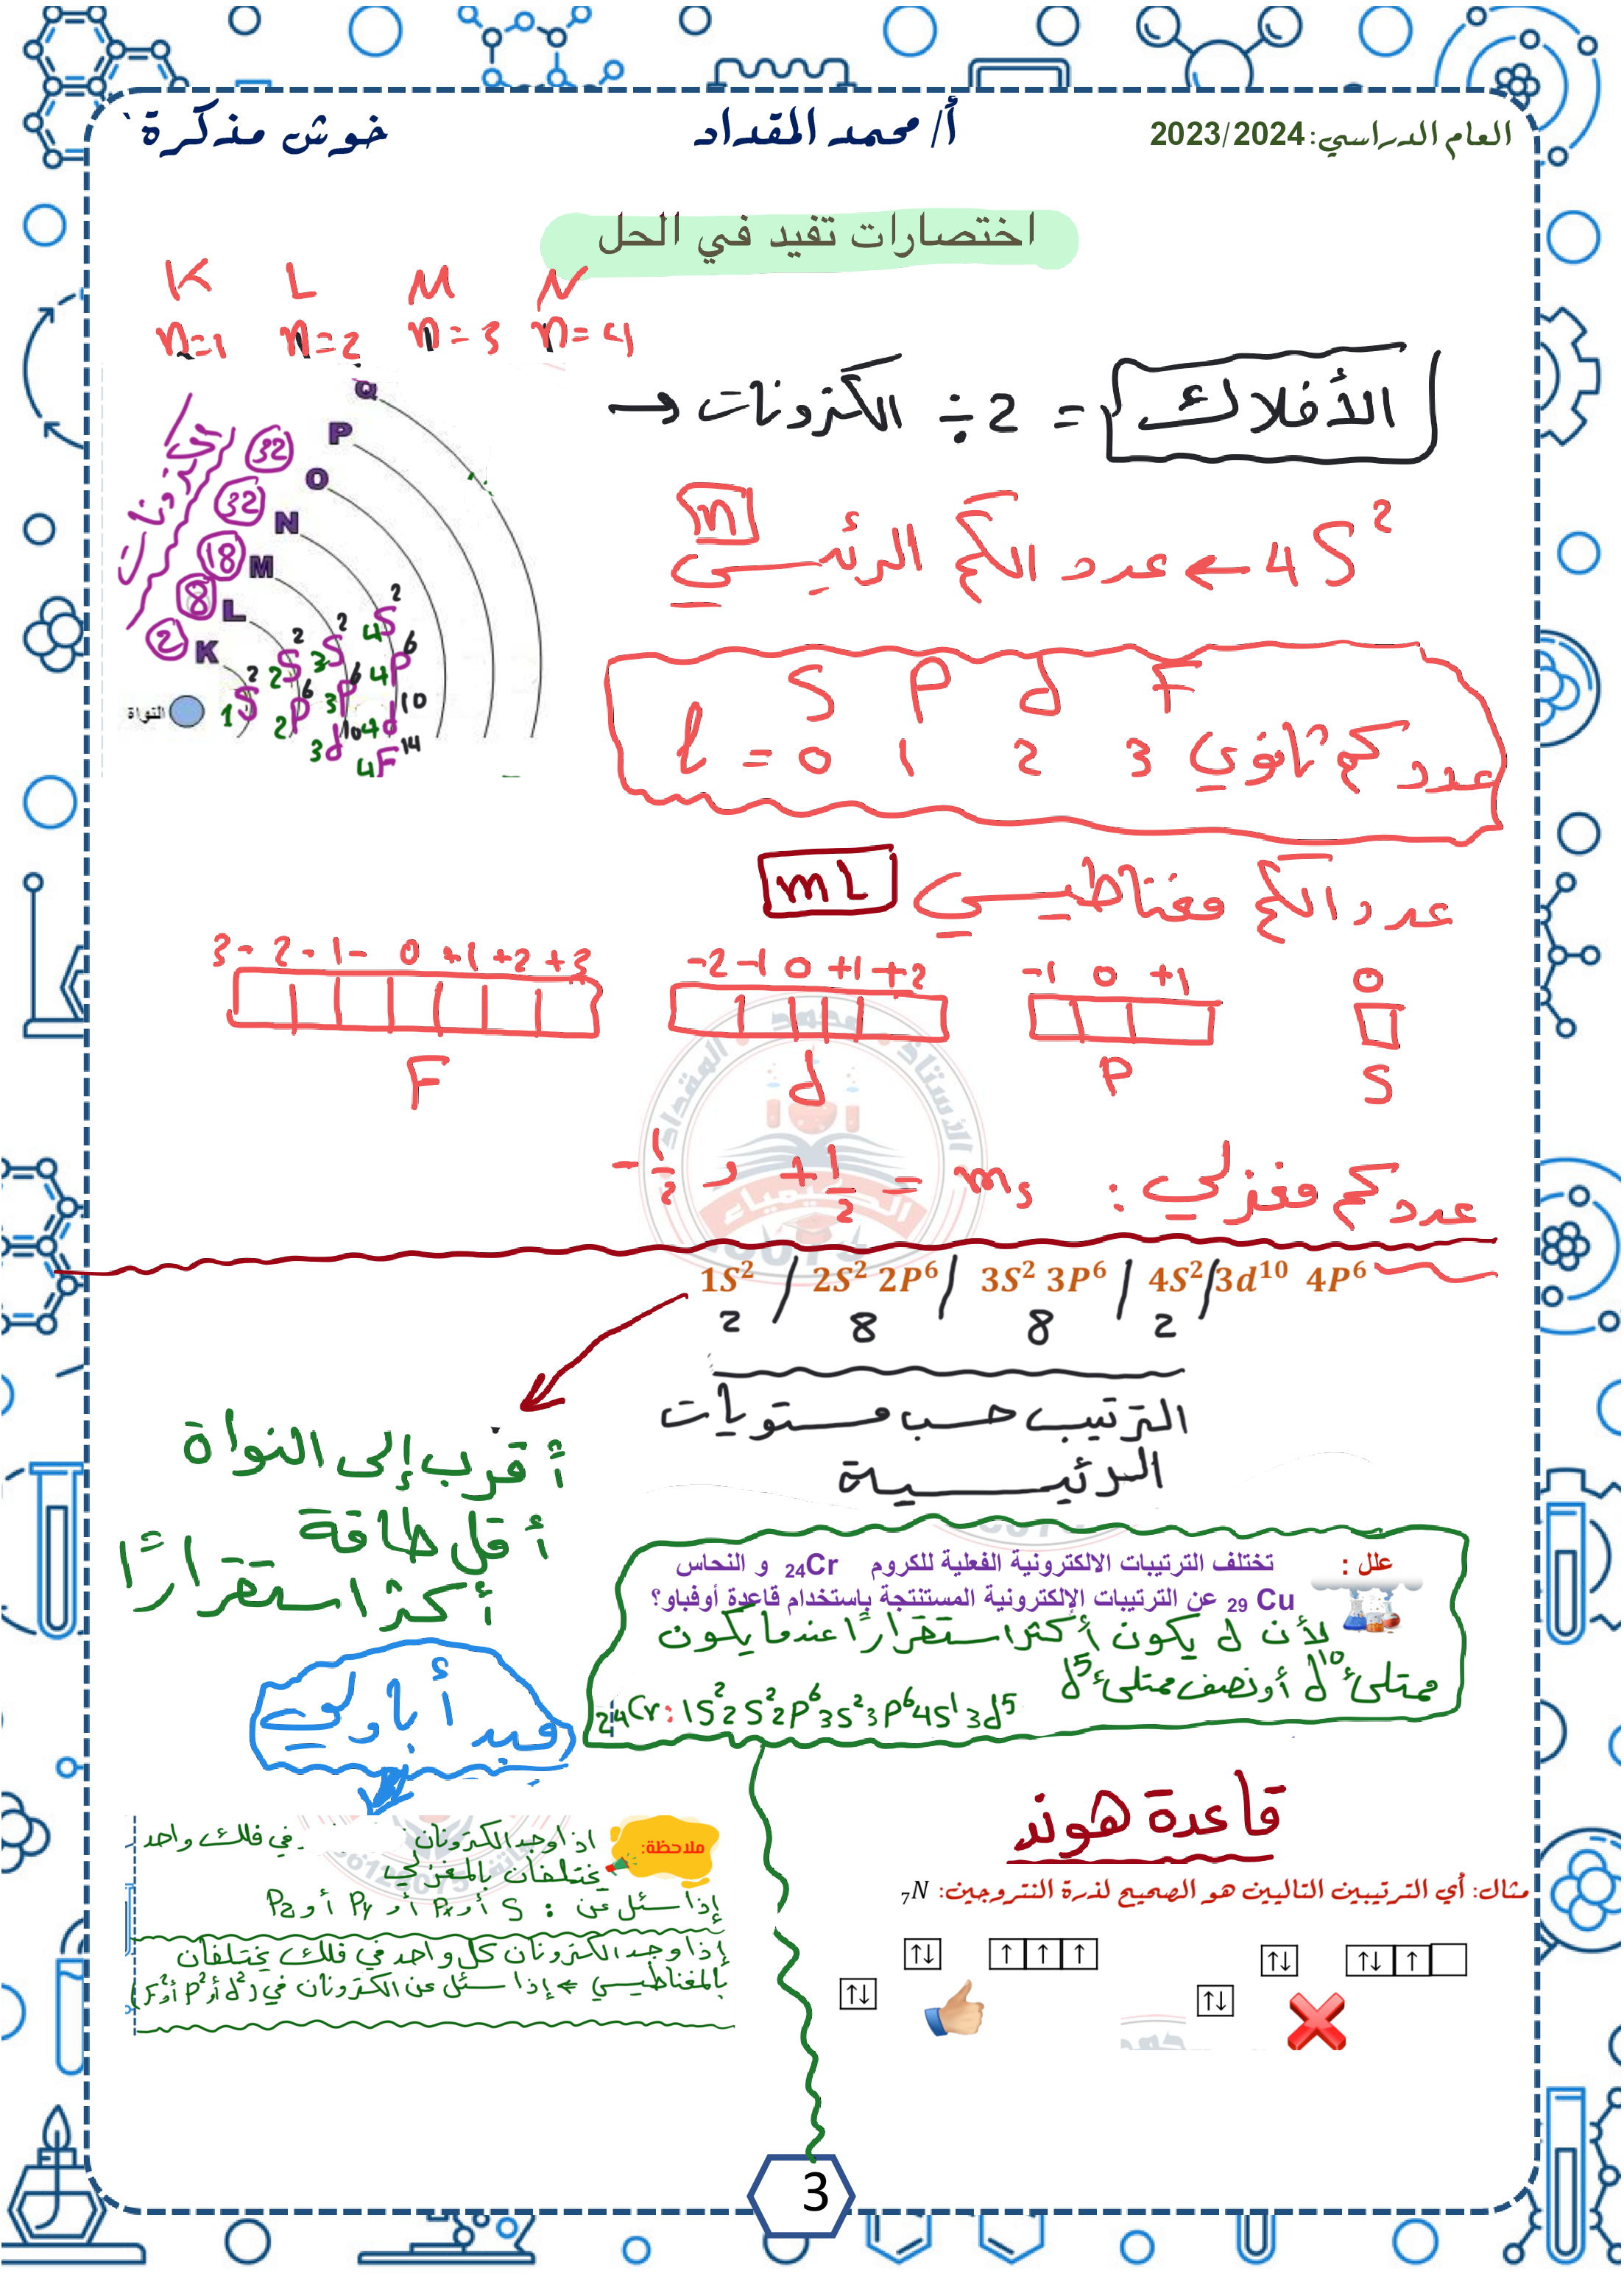 العام الدراسي: 2023/2024
أ/ محمد المقداد
خوش مذكرة
اختصارات تفيد في الحل
K L M N
n=1 n=2 n=3 n=4
الأفلاك = 2 ÷ الكترونات →
Q
P
32 O
32 N
18 M
8 L
2 K
النواة
1S² 2S² 3S² 4S²
2P⁶ 3P⁶ 4P⁶
3d¹⁰ 4d¹⁰
4F¹⁴
4S² ← عدد الكم الرئيسي n
S P d F
l = 0 1 2 3 عدد كم ثانوي
عدد الكم مغناطيسي mL
3- 2- 1- 0 +1 +2 +3
-2 -1 0 +1 +2
-1 0 +1
0
F d P S
عدد كم مغزلي: ms = +1/2 و -1/2
1S² / 2S² 2P⁶ / 3S² 3P⁶ / 4S² / 3d¹⁰ 4P⁶
2 8 8 2
الترتيب حسب مستويات
الرئيسية
أقرب إلى النواة
أقل طاقة
أكثر استقرارًا
علل : تختلف الترتيبات الالكترونية الفعلية للكروم ₂₄Cr و النحاس
₂₉Cu عن الترتيبات الإلكترونية المستنتجة بإستخدام قاعدة أوفباو؟
لأن d يكون أكثر استقرارًا عندما يكون
ممتلئ d¹⁰ أو نصف ممتلئ d⁵
₂₄Cr: 1S² 2S² 2P⁶ 3S² 3P⁶ 4S¹ 3d⁵
مبدأ باولي
ملاحظة:
اذا وجد الكترونان في فلك واحد
يختلفان بالمغزلي
إذا سئل عن : S أو Px أو Py أو Pz
إذا وجد الكترونان كل واحد في فلك يختلفان
بالمغناطيسي ← إذا سئل عن الكترونان في (d² أو P² أو F²)
قاعدة هوند
مثال: أي الترتيبين التاليين هو الصحيح لذرة النتروجين: ₇N
↑↓ ↑ ↑ ↑
↑↓
↑↓ ↑↓ ↑
↑↓
3